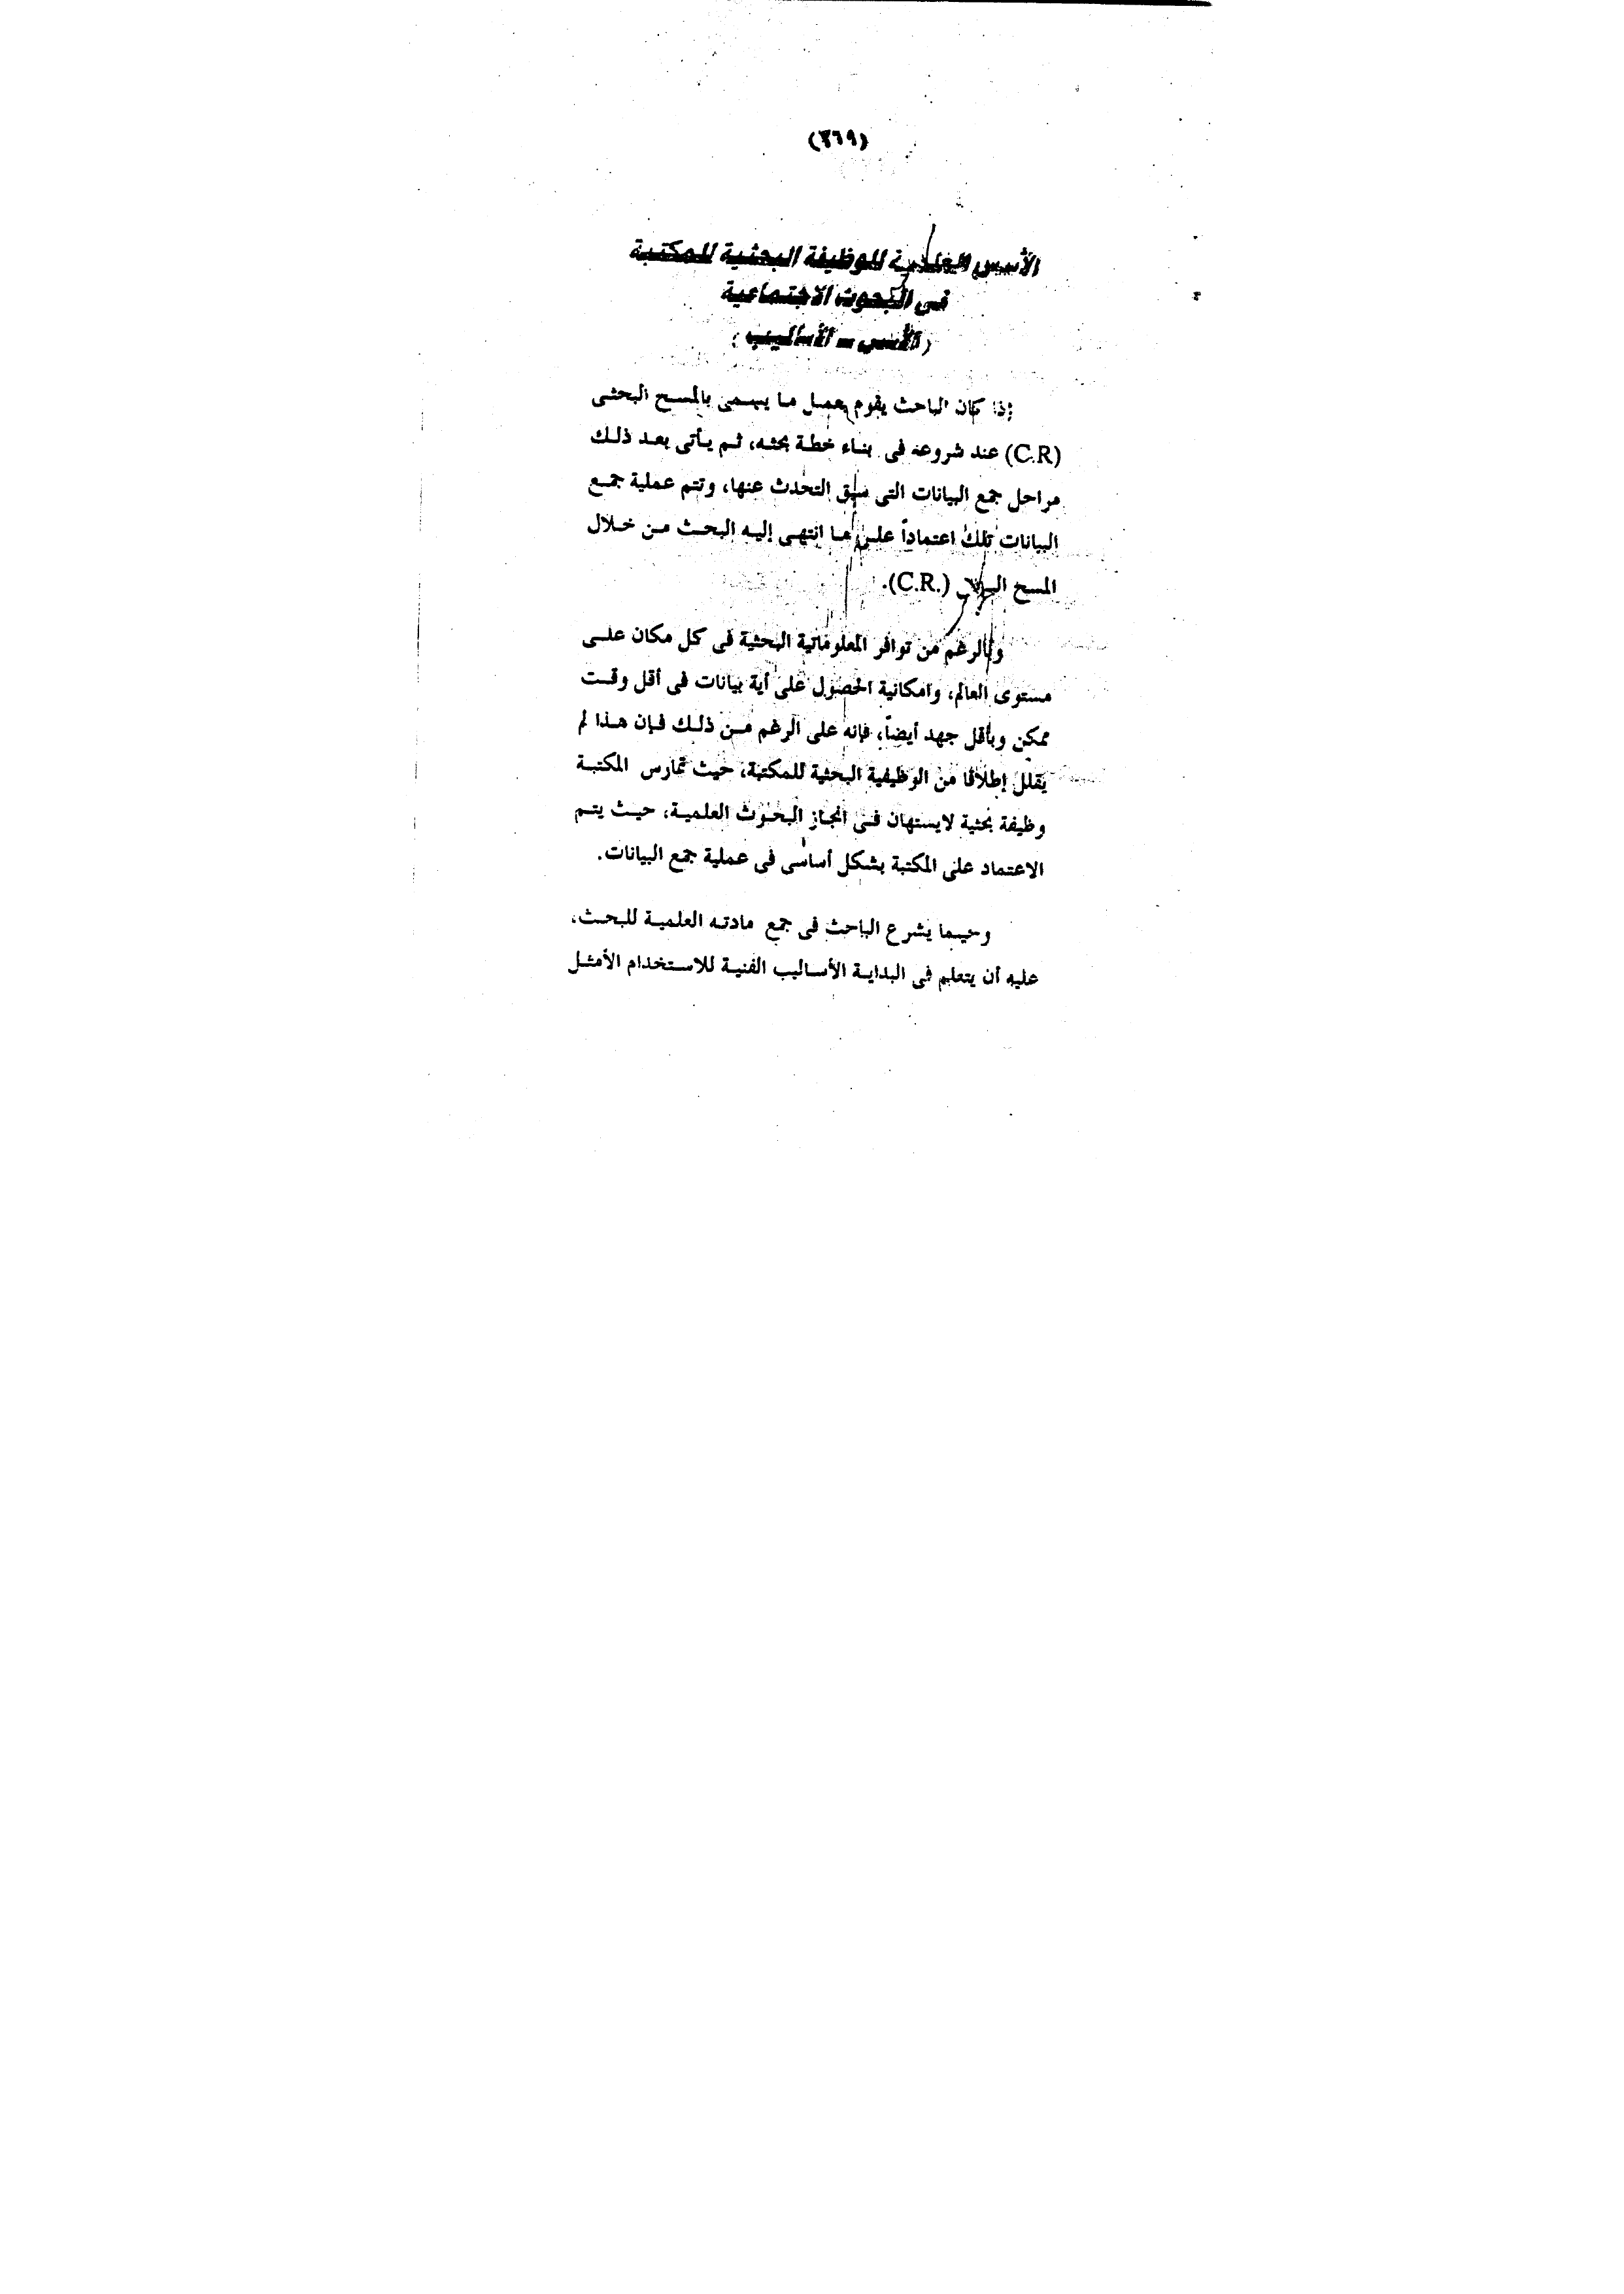 (٣٦٩)
الأسس العلمية للوظيفة البحثية للمكتبة
فى البحوث الاجتماعية
(الأسس - الأساليب)
إذا كان الباحث يقوم بعمل ما يسمى بالمسح البحثى
(C.R) عند شروعه فى بناء خطة بحثه، ثم يأتى بعد ذلك
مراحل جمع البيانات التى سبق التحدث عنها، وتتم عملية جمع
البيانات تلك اعتماداً على ما انتهى إليه البحث من خلال
المسح (C.R.).
وبالرغم من توافر المعلوماتية البحثية فى كل مكان على
مستوى العالم، وامكانية الحصول على أية بيانات فى أقل وقت
ممكن وبأقل جهد أيضاً، فإنه على الرغم من ذلك فإن هذا لم
يقلل إطلاقا من الوظيفية البحثية للمكتبة، حيث تمارس المكتبة
وظيفة بحثية لايستهان فى انجاز البحوث العلمية، حيث يتم
الاعتماد على المكتبة بشكل أساسى فى عملية جمع البيانات.
وحينما يشرع الباحث فى جمع مادته العلمية للبحث،
عليه أن يتعلم فى البداية الأساليب الفنية للاستخدام الأمثل